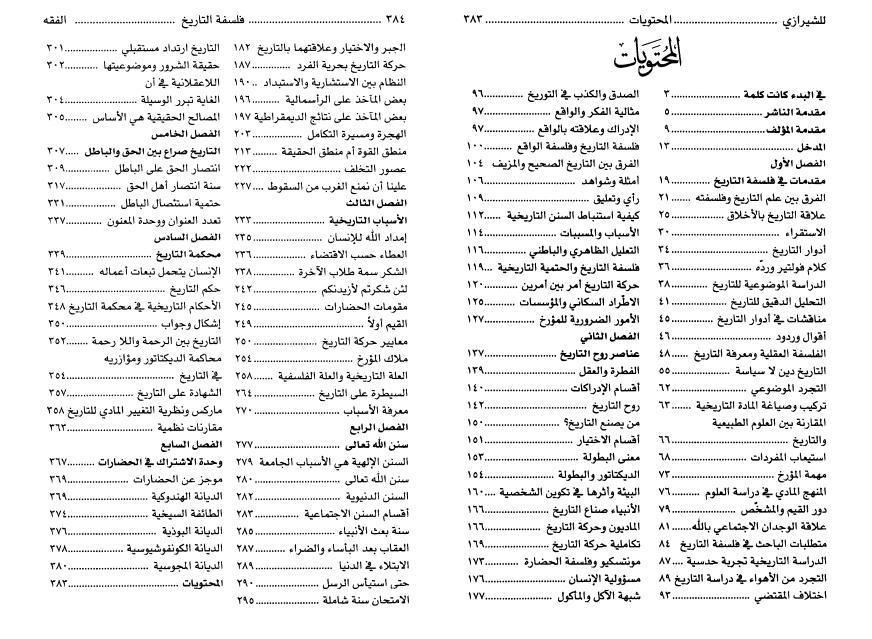 للشيرازي ........ المحتويات ........ ٣٨٣
المحتويات
في البدء كانت كلمة ........ ٣
مقدمة الناشر ........ ٥
مقدمة المؤلف ........ ٩
المدخل ........ ١٣
الفصل الأول
مقدمات في فلسفة التاريخ ........ ١٩
الفرق بين علم التاريخ وفلسفته ........ ٢١
علاقة التاريخ بالأخلاق ........ ٢٥
الاستقراء ........ ٣٠
أدوار التاريخ ........ ٣٤
كلام فولتير وردّه ........ ٣٦
الدراسة الموضوعية للتاريخ ........ ٣٨
التحليل الدقيق للتاريخ ........ ٤١
مناقشات في أدوار التاريخ ........ ٤٥
أقوال وردود ........ ٤٦
الفلسفة العقلية ومعرفة التاريخ ........ ٤٨
التاريخ دين لا سياسة ........ ٥٥
التجرد الموضوعي ........ ٦٢
تركيب وصياغة المادة التاريخية ........ ٦٣
المقارنة بين العلوم الطبيعية
والتاريخ ........ ٦٦
استيعاب المفردات ........ ٦٨
مهمة المؤرخ ........ ٧٣
المنهج المادي في دراسة العلوم ........ ٧٦
دور القيم والمشخّص ........ ٧٩
علاقة الوجدان الاجتماعي بالله ........ ٨١
متطلبات الباحث في فلسفة التاريخ ٨٤
الدراسة التاريخية تجربة حدسية .... ٨٧
التجرد من الأهواء في دراسة التاريخ ٨٩
اختلاف المقتضي ........ ٩٣
الصدق والكذب في التوريخ ........ ٩٦
مثالية الفكر والواقع ........ ٩٧
الإدراك وعلاقته بالواقع ........ ٩٧
فلسفة التاريخ وفلسفة الواقع ........ ١٠٠
الفرق بين التاريخ الصحيح والمزيف ١٠٤
أمثلة وشواهد ........ ١٠٦
رأي وتعليق ........ ١٠٩
كيفية استنباط السنن التاريخية ........ ١١٢
الأسباب والمسببات ........ ١١٤
التعليل الظاهري والباطني ........ ١١٦
فلسفة التاريخ والحتمية التاريخية ... ١١٩
حركة التاريخ أمر بين أمرين ........ ١٢٠
الاطّراد السكاني والمؤسسات ........ ١٢٥
الأمور الضرورية للمؤرخ ........ ١٢٧
الفصل الثاني
عناصر روح التاريخ ........ ١٣٧
الفطرة والعقل ........ ١٣٩
أقسام الإدراكات ........ ١٤٠
روح التاريخ ........ ١٤٢
من يصنع التاريخ؟ ........ ١٥٠
أقسام الاختيار ........ ١٥١
معنى البطولة ........ ١٥٣
الديكتاتور والبطولة ........ ١٥٤
البيئة وأثرها في تكوين الشخصية .... ١٦٠
الأنبياء صناع التاريخ ........ ١٦٦
الماديون وحركة التاريخ ........ ١٦٦
تكاملية حركة التاريخ ........ ١٦٩
مونتسكيو وفلسفة الحضارة ........ ١٧٣
مسؤولية الإنسان ........ ١٧٦
شبهة الآكل والمأكول ........ ١٧٧
٣٨٤ ........ فلسفة التاريخ ........ الفقه
الجبر والاختيار وعلاقتهما بالتاريخ ١٨٢
حركة التاريخ بحرية الفرد ........ ١٨٧
النظام بين الاستشارية والاستبداد .. ١٩٠
بعض المآخذ على الرأسمالية ........ ١٩٦
بعض المآخذ على نتائج الديمقراطية ١٩٧
الهجرة ومسيرة التكامل ........ ٢٠٣
منطق القوة أم منطق الحقيقة ........ ٢١٣
عصور التخلف ........ ٢٢٢
علينا أن نمنع الغرب من السقوط ... ٢٢٧
الفصل الثالث
الأسباب التاريخية ........ ٢٣٣
إمداد الله للإنسان ........ ٢٣٥
العطاء حسب الاقتضاء ........ ٢٣٦
الشكر سمة طلاب الآخرة ........ ٢٣٨
لئن شكرتم لأزيدنكم ........ ٢٤٢
مقومات الحضارات ........ ٢٤٥
القيم أولاً ........ ٢٤٩
معايير حركة التاريخ ........ ٢٥٠
ملاك المؤرخ ........ ٢٥٤
العلة التاريخية والعلة الفلسفية ........ ٢٥٨
السيطرة على التاريخ ........ ٢٦٤
معرفة الأسباب ........ ٢٧٠
الفصل الرابع
سنن الله تعالى ........ ٢٧٧
السنن الإلهية هي الأسباب الجامعة ٢٧٩
سنن الله تعالى ........ ٢٨٠
السنن الدنيوية ........ ٢٨٢
أقسام السنن الاجتماعية ........ ٢٨٣
سنة بعث الأنبياء ........ ٢٨٥
العقاب بعد البأساء والضراء ........ ٢٨٧
الابتلاء في الدنيا ........ ٢٨٩
حتى استيأس الرسل ........ ٢٩٠
الامتحان سنة شاملة ........ ٢٩٥
التاريخ ارتداد مستقبلي ........ ٣٠١
حقيقة الشرور وموضوعيتها ........ ٣٠٢
اللاعقلانية في أن
الغاية تبرر الوسيلة ........ ٣٠٤
المصالح الحقيقية هي الأساس ........ ٣٠٥
الفصل الخامس
التاريخ صراع بين الحق والباطل ..... ٣٠٧
انتصار الحق على الباطل ........ ٣٠٩
سنة انتصار أهل الحق ........ ٣١٧
حتمية استئصال الباطل ........ ٣٢١
تعدد العنوان ووحدة المعنون ........ ٣٢٧
الفصل السادس
محكمة التاريخ ........ ٣٣٩
الإنسان يتحمل تبعات أعماله ........ ٣٤١
حكم التاريخ ........ ٣٤٦
الأحكام التاريخية في محكمة التاريخ ٣٤٨
إشكال وجواب ........ ٣٥٠
التاريخ بين الرحمة واللا رحمة ........ ٣٥٢
محاكمة الديكتاتور ومؤازريه
في التاريخ ........ ٣٥٤
الشهادة على التاريخ ........ ٣٥٧
ماركس ونظرية التغيير المادي للتاريخ ٣٥٨
مقارنات نظمية ........ ٣٦٣
الفصل السابع
وحدة الاشتراك في الحضارات ........ ٣٦٧
موجز عن الحضارات ........ ٣٦٩
الديانة الهندوكية ........ ٣٦٩
الطائفة السيخية ........ ٣٧٤
الديانة البوذية ........ ٣٧٦
الديانة الكونفوشيوسية ........ ٣٧٨
الديانة المجوسية ........ ٣٨٠
المحتويات ........ ٣٨٣